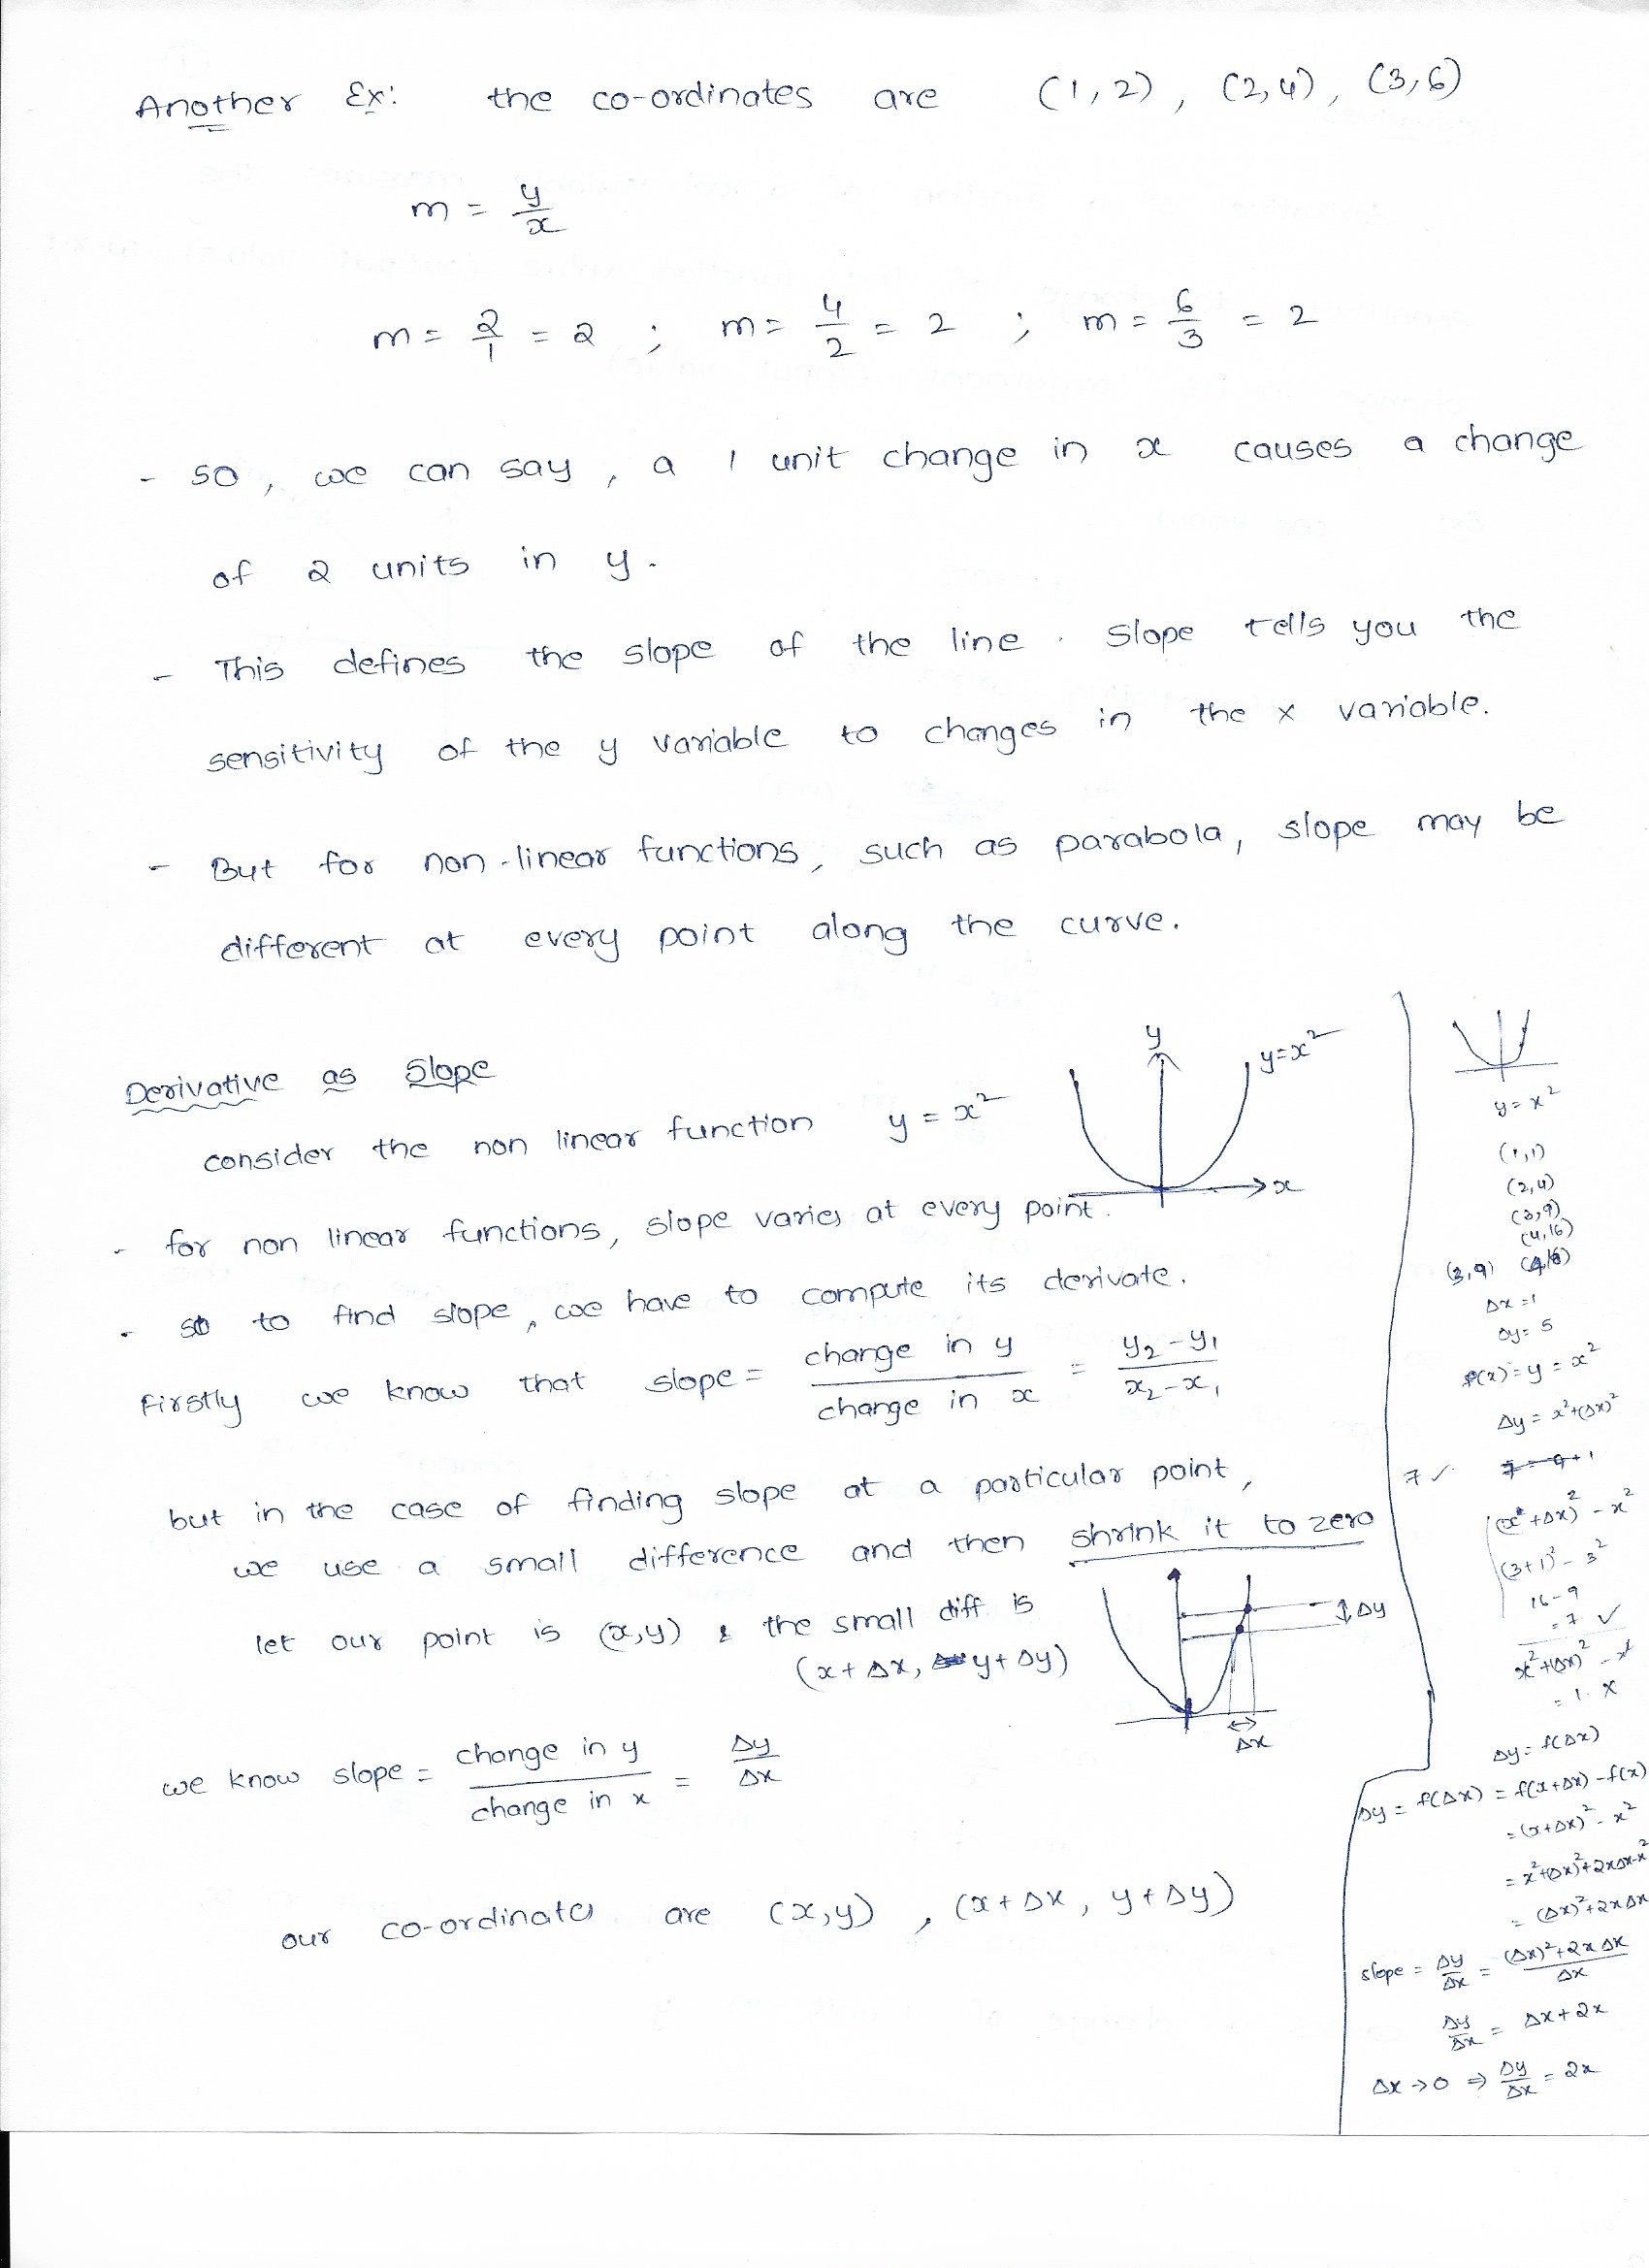 Another Ex: the co-ordinates are (1,2), (2,4), (3,6)
m = y/x
m = 2/1 = 2 ; m = 4/2 = 2 ; m = 6/3 = 2
- so, we can say, a 1 unit change in x causes a change
of 2 units in y.
- This defines the slope of the line. Slope tells you the
sensitivity of the y variable to changes in the x variable.
- But for non-linear functions, such as parabola, slope may be
different at every point along the curve.
Derivative as Slope
consider the non linear function y = x²
y
y=x²
x
- for non linear functions, slope varies at every point.
- so to find slope, we have to compute its derivate.
Firstly we know that slope = change in y / change in x = y₂-y₁ / x₂-x₁
but in the case of finding slope at a particular point,
we use a small difference and then shrink it to zero
let our point is (x,y) & the small diff is
(x+Δx, y+Δy)
Δy
Δx
we know slope = change in y / change in x = Δy/Δx
our co-ordinates are (x,y), (x+Δx, y+Δy)
y=x²
(1,1)
(2,4)
(3,9)
(4,16)
(3,9) (4,16)
Δx=1
Δy=5
f(x)=y=x²
Δy = x²+(Δx)²
7 ✓ 7=9+1
(x+Δx)²-x²
(3+1)²-3²
16-9
=7 ✓
x²+(Δx)²-x²
=1. X
Δy=f(Δx)
Δy = f(Δx) = f(x+Δx)-f(x)
=(x+Δx)²-x²
=x²+(Δx)²+2xΔx-x²
=(Δx)²+2xΔx
slope = Δy/Δx = (Δx)²+2xΔx / Δx
Δy/Δx = Δx+2x
Δx→0 ⇒ Δy/Δx = 2x